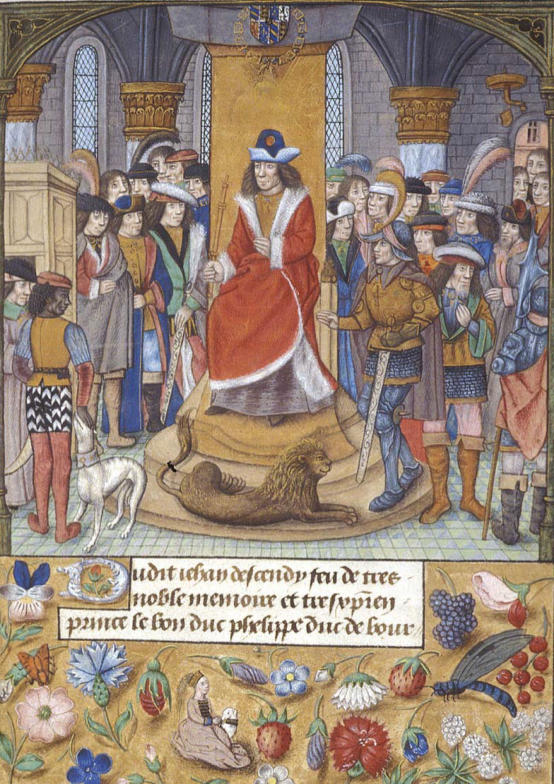 Dudit iehan descendy feu de tres
noble memoire et tresxpien
prince le bon duc phelippe duc de bour